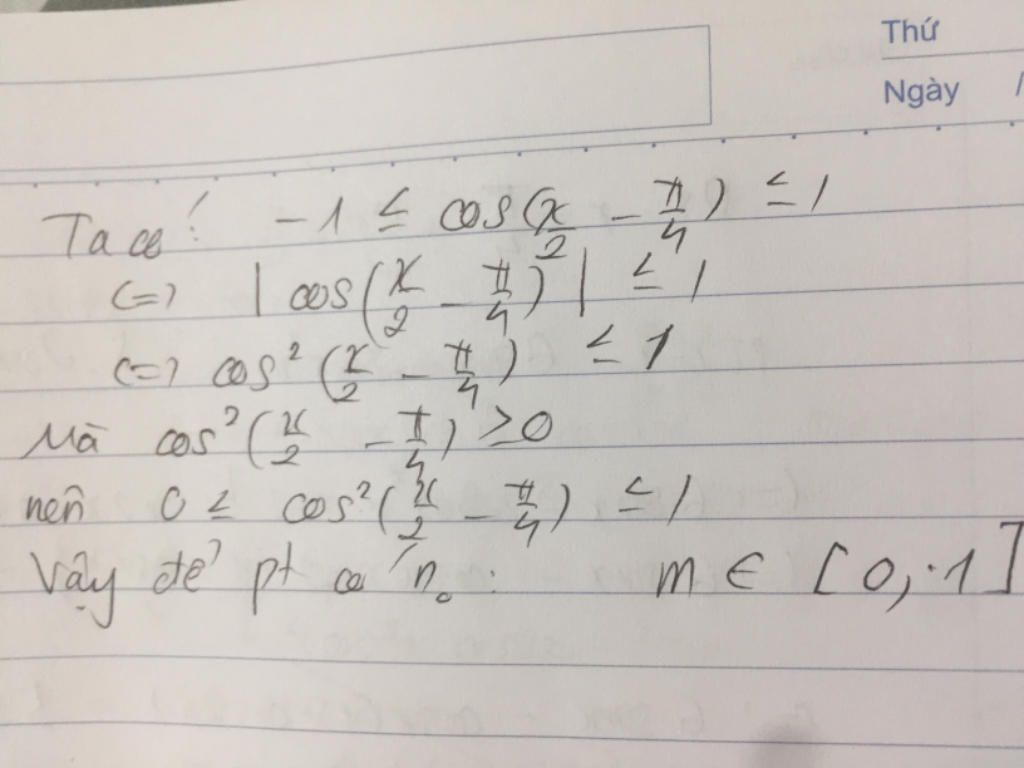 Thứ
Ngày /
Ta có: -1 ≤ cos(x/2 - π/4) ≤ 1
(=) |cos(x/2 - π/4)| ≤ 1
(=) cos²(x/2 - π/4) ≤ 1
Mà cos²(x/2 - π/4) ≥ 0
nên 0 ≤ cos²(x/2 - π/4) ≤ 1
Vậy để pt có no: m ∈ [0; 1]